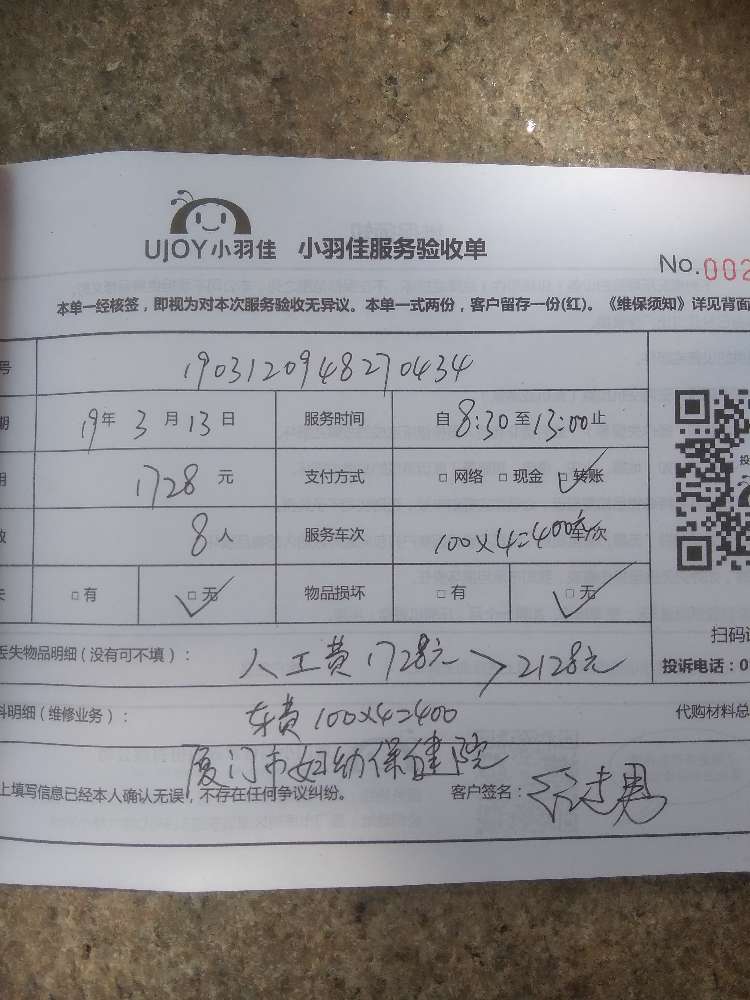 UJOY小羽佳 小羽佳服务验收单
No.002
本单一经核签，即视为对本次服务验收无异议。本单一式两份，客户留存一份(红)。《维保须知》详见背面
号 1903120948270434
期 19年 3 月 13 日 服务时间 自 8:30 至 13:00 止
用 1728 元 支付方式 □ 网络 □ 现金 □ 转账
数 8 人 服务车次 100×4=400元 车/次
失 □ 有 □ 无 物品损坏 □ 有 □ 无
扫码
丢失物品明细（没有可不填）： 人工费1728元 > 2128元 投诉电话：0
料明细（维修业务）： 车费100×4=400 代购材料总
厦门市妇幼保健院
上填写信息已经本人确认无误，不存在任何争议纠纷。 客户签名：